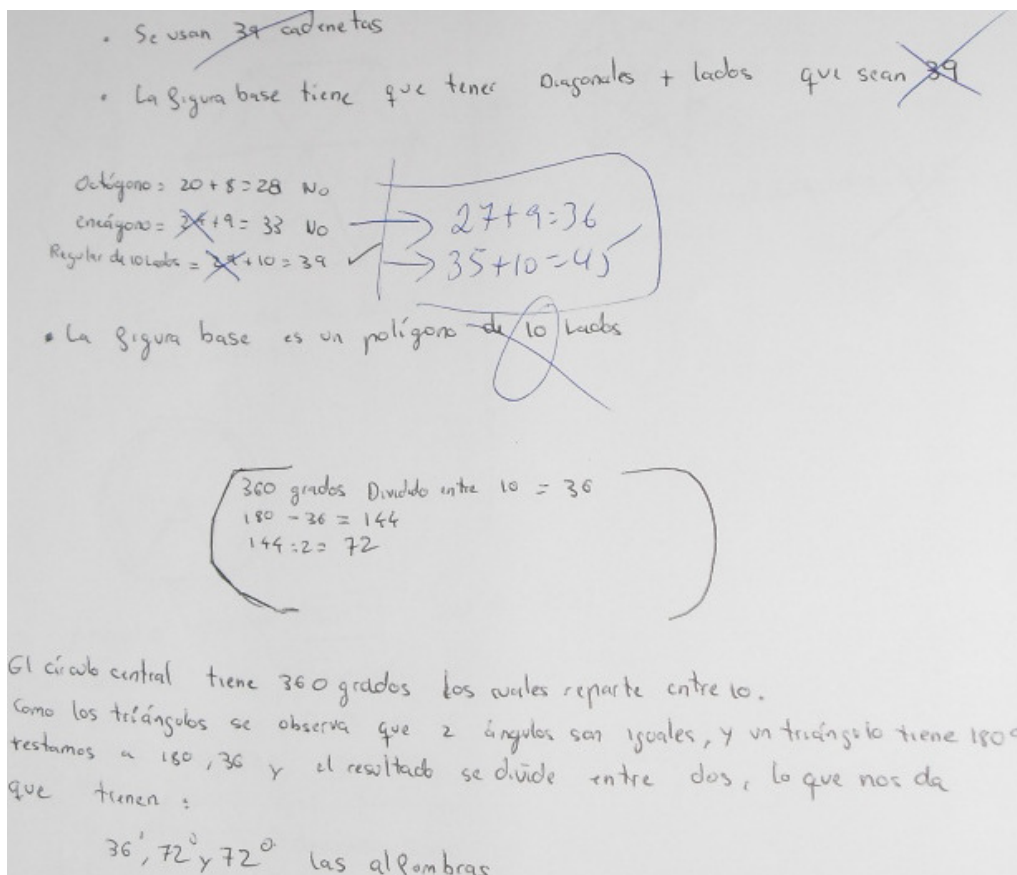 • Se usan 39 cadenetas
• La figura base tiene que tener Diagonales + lados que sean 39
Octógono = 20 + 8 = 28 No
eneágono = +9 = 33 No → 27+9=36
Regular de 10 Lados = +10 = 39 ✓ → 35+10=45
• La figura base es un polígono de 10 Lados
360 grados Dividido entre 10 = 36
180 - 36 = 144
144 : 2 = 72
El círculo central tiene 360 grados los cuales reparte entre 10.
Como los triángulos se observa que 2 ángulos son iguales, y un triángulo tiene 180°
restamos a 180, 36 y el resultado se divide entre dos, lo que nos da
que tienen :
36°, 72° y 72° las alfombras